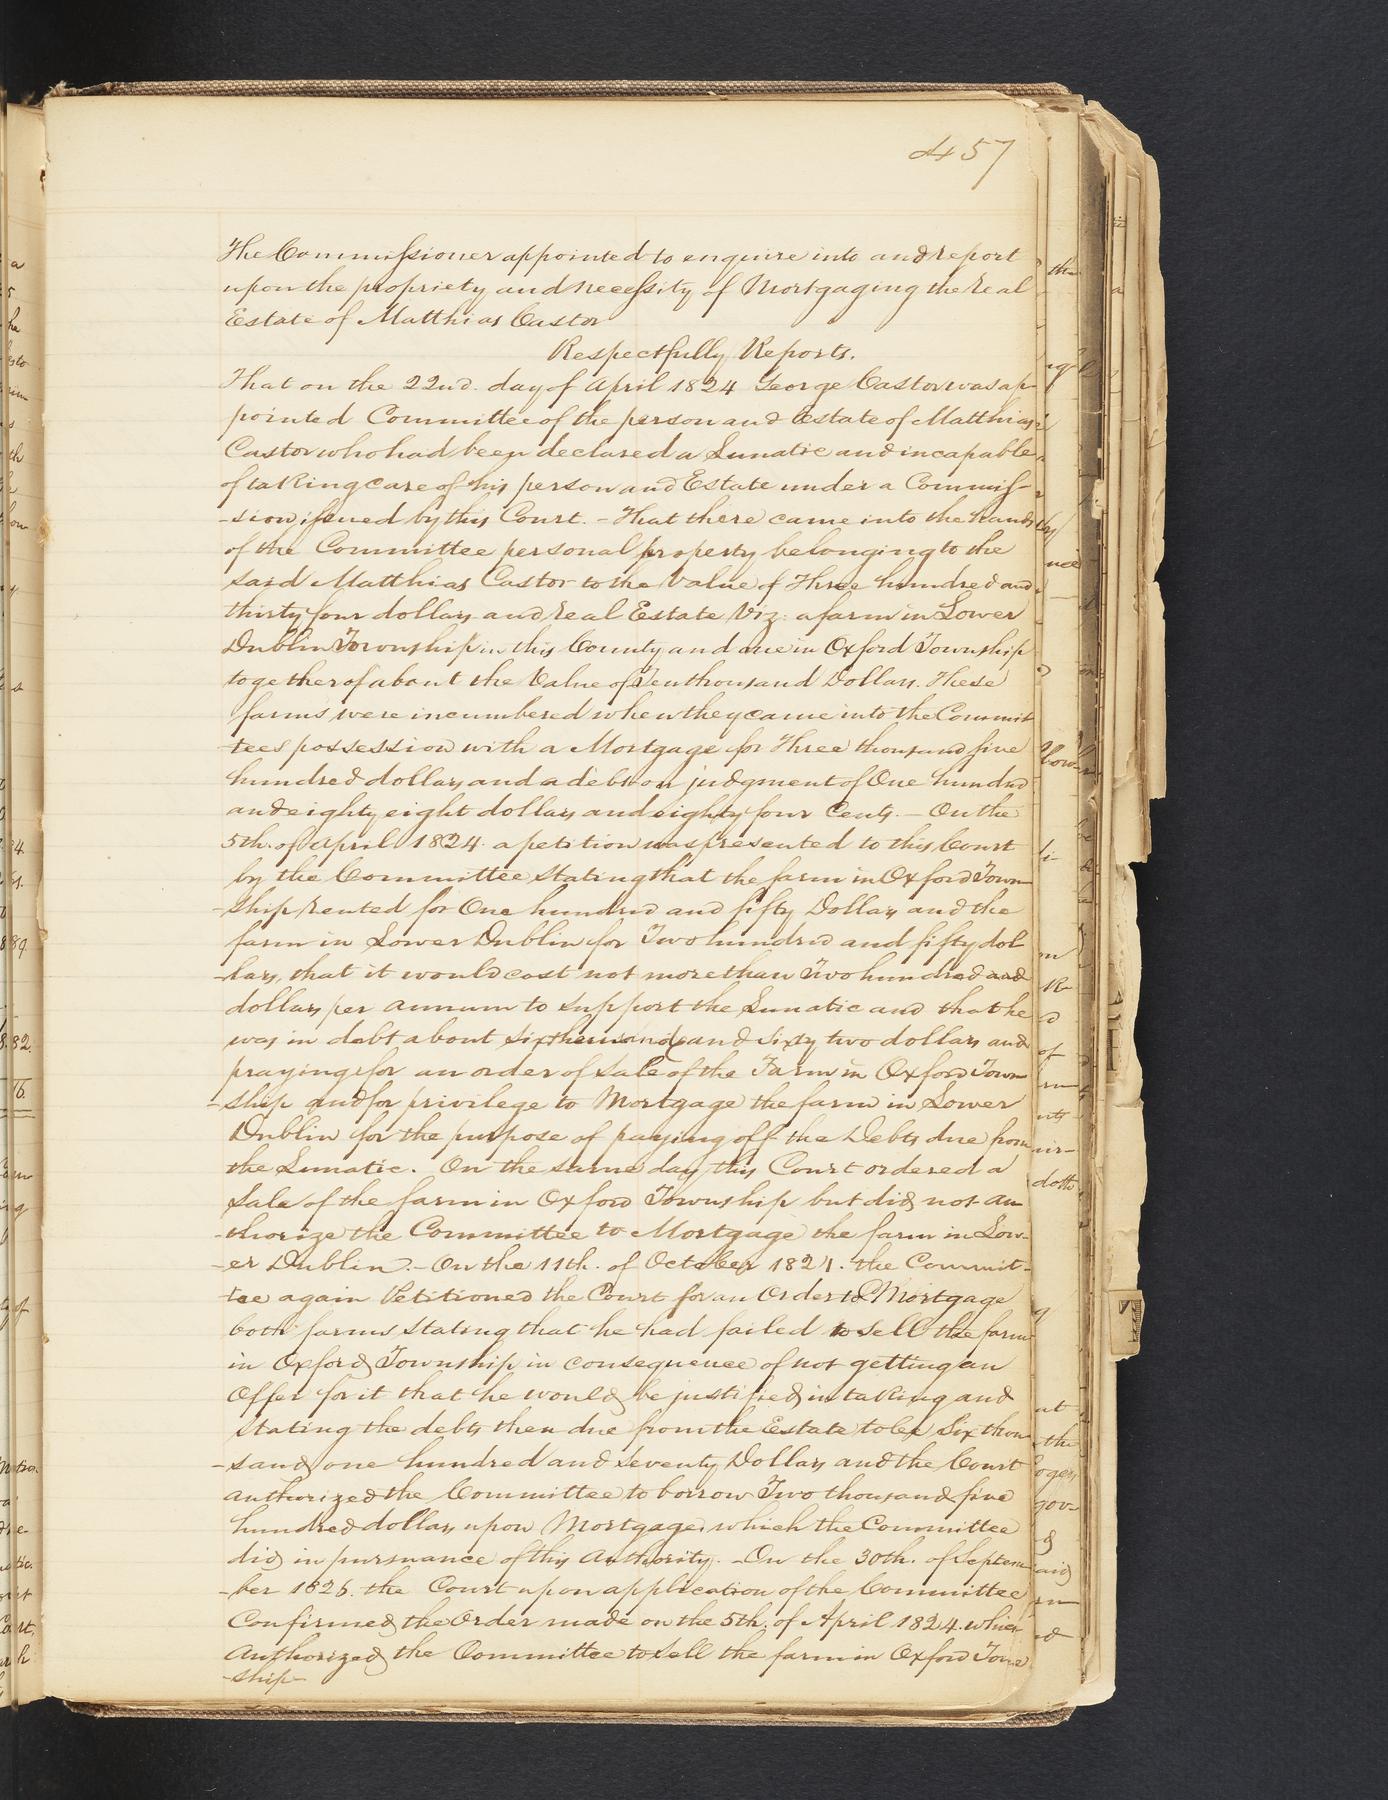 457
The Commissioner appointed to enquire into and report
upon the propriety and necessity of Mortgaging the Real
Estate of Matthias Castor
Respectfully Reports.
That on the 22nd. day of April 1824 George Castor was ap-
pointed Committee of the person and Estate of Matthias
Castor who had been declared a Lunatic and incapable
of taking care of his person and Estate under a Commis-
-sion issued by this Court. - That there came into the hands
of the Committee personal property belonging to the
said Matthias Castor to the Value of Three hundred and
thirty four dollars and real Estate Viz: a farm in Lower
Dublin Township in this County and one in Oxford Township
together of about the Value of Ten thousand Dollars. These
farms were incumbered when they came into the Commit
tees possession with a Mortgage for Three thousand five
hundred dollars and a debt on judgment of One hundred
and eighty eight dollars and eighty four Cents. - On the
5th. of April 1824 a petition was presented to this Court
by the Committee stating that the farm in Oxford Town
-ship rented for One hundred and fifty Dollars and the
farm in Lower Dublin for Two hundred and fifty dol
-lars, that it would cost not more than Two hundred and
dollars per annum to support the Lunatic and that he
was in debt about six thousand and sixty two dollars and
praying for an order of sale of the Farm in Oxford Town
-ship and for privilege to Mortgage the farm in Lower
Dublin for the purpose of paying off the Debts due from
the Lunatic. On the same day this Court ordered a
Sale of the farm in Oxford Township but did not au
-thorize the Committee to Mortgage the farm in Low-
-er Dublin. - On the 11th. of October 1824. the Commit-
tee again Petitioned the Court for an Order to Mortgage
both farms stating that he had failed to sell the farm
in Oxford Township in consequence of not getting an
Offer for it that he would be justified in taking and
stating the debts then due from the Estate to be Six thou
-sand one hundred and seventy Dollars and the Court
authorized the Committee to borrow Two thousand five
hundred dollars upon Mortgage, which the Committee
did in pursuance of this Authority. - On the 30th. of Septem
-ber 1826. the Court upon application of the Committee
Confirmed the Order made on the 5th. of April 1824. which
authorized the Committee to sell the farm in Oxford Town
-ship-